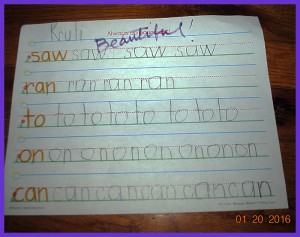 Beautiful!
saw saw saw saw
ran ran ran ran
to to to to to to to to
on on on on on on on on
can can can can can can
01.20.2016